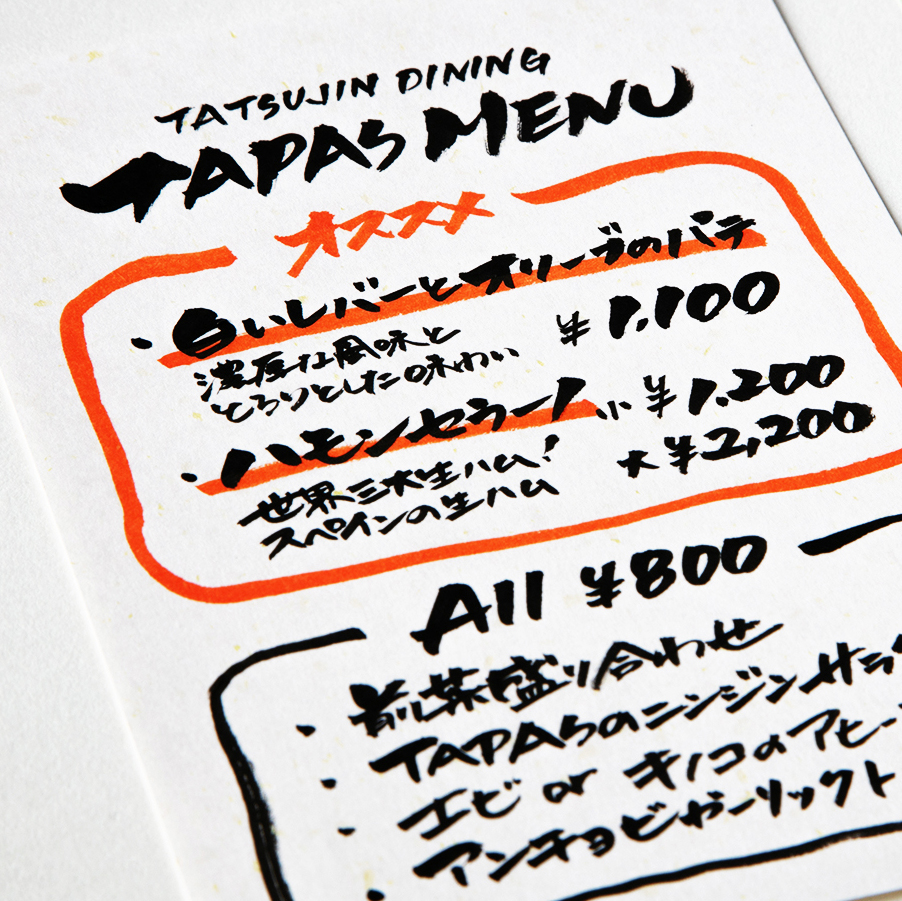 TATSUJIN DINING
TAPAS MENU
オススメ
・白いレバーとオリーブのパテ
濃厚な風味と
とろりとした味わい
¥1,100
・ハモンセラーノ 小 ¥1,200
世界三大生ハム!
スペインの生ハム
大 ¥2,200
All ¥800
・前菜盛り合わせ
・TAPASのニンジンサラ
・エビ or キノコのアヒー
・アンチョビガーリックト